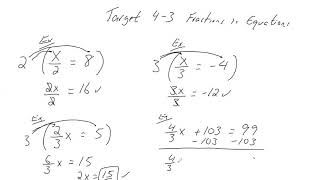 Target 4-3 Fractions in Equations
Ex
2 (x/2 = 8)
2x/2 = 16 ✓
Ex
3 (x/3 = -4)
3x/3 = -12 ✓
Ex
3 (2/3 x = 5)
6/3 x = 15
2x = 15 ✓
Ex
4/3 x + 103 = 99
-103 -103
4/3